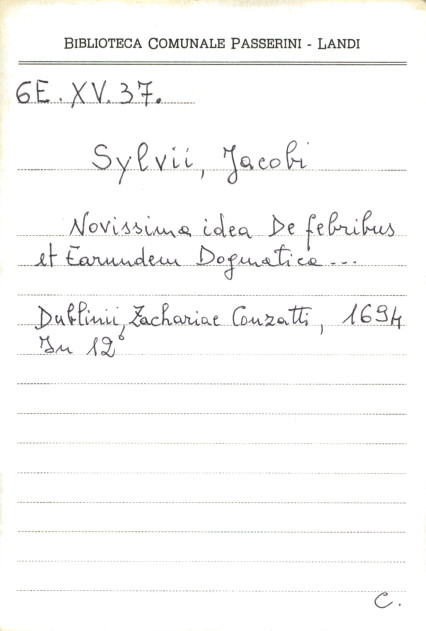 BIBLIOTECA COMUNALE PASSERINI - LANDI
6E. XV. 37.
Sylvii, Jacobi
Novissima idea De febribus
et Earundem Dogmatica ...
Dublinii, Zachariae Conzatti, 1694
In 12°
C.